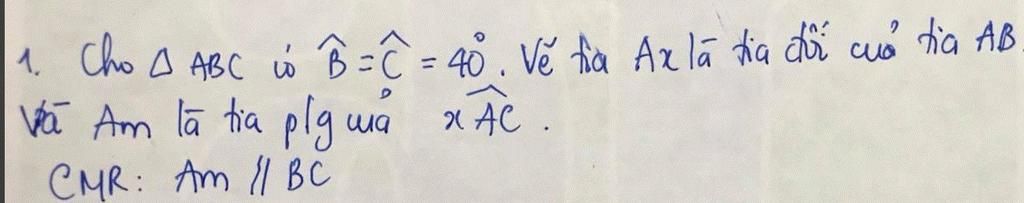 1. Cho Δ ABC có B̂ = Ĉ = 40°. Vẽ tia Ax là tia đối của tia AB.
Và Am là tia p/g của xÂC.
CMR: Am // BC